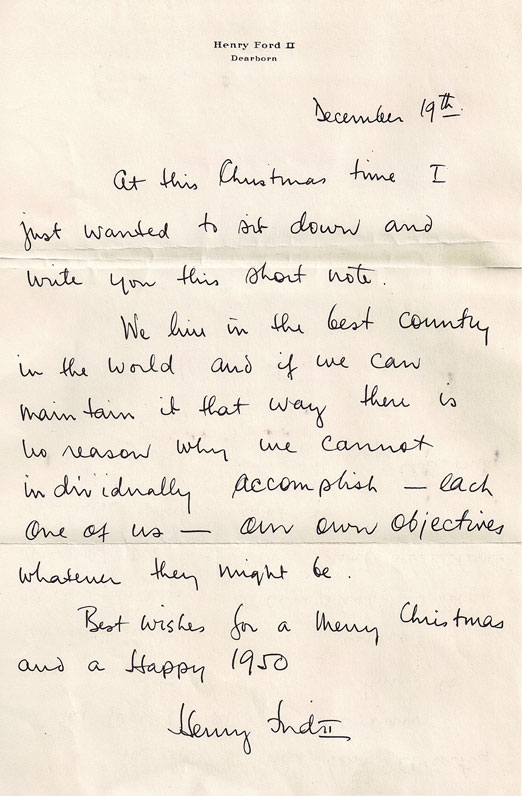 Henry Ford II
Dearborn
December 19th.
At this Christmas time I
just wanted to sit down and
write you this short note.
We live in the best country
in the world and if we can
maintain it that way there is
no reason why we cannot
individually accomplish — each
one of us — our own objectives
whatever they might be.
Best wishes for a Merry Christmas
and a Happy 1950
Henry Ford II